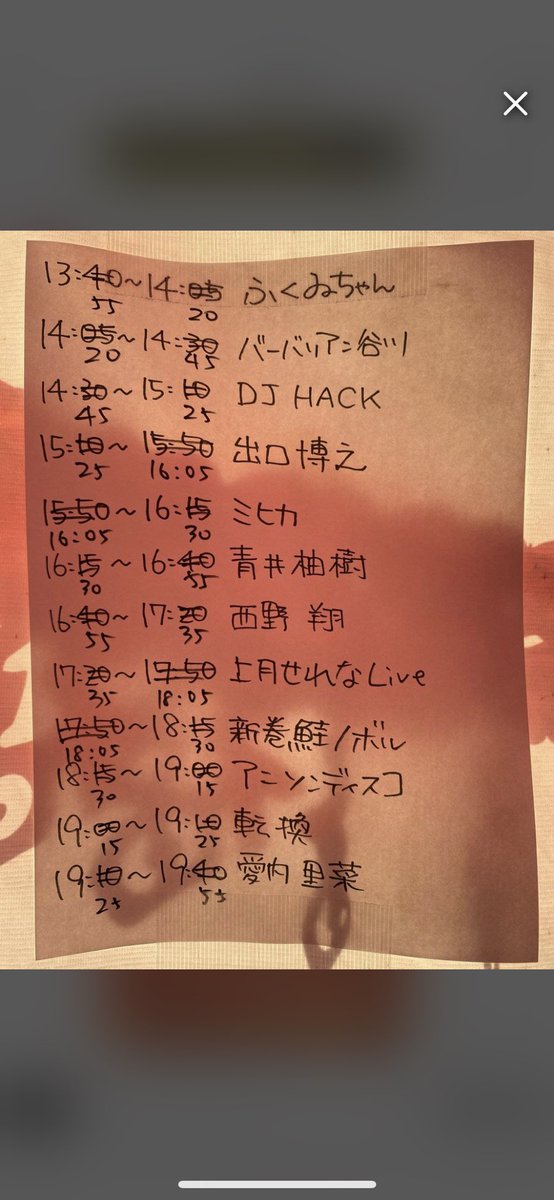 13:40～14:05 ふくゐちゃん
55 20
14:05～14:30 バーバリアン谷川
20 45
14:30～15:10 DJ HACK
45 25
15:10～15:50 出口博之
25 16:05
15:50～16:15 ミヒカ
16:05 30
16:15～16:40 青井柚樹
30 55
16:40～17:20 西野 翔
55 35
17:20～17:50 上月せれなLive
35 18:05
17:50～18:15 新巻鮭ノボル
18:05 30
18:15～19:00 アニソンディスコ
30 15
19:00～19:10 転換
15 25
19:10～19:40 愛内里菜
25 55